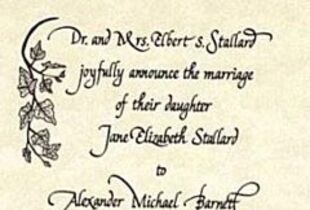 Dr. and Mrs. Elbert S. Stallard
joyfully announce the marriage
of their daughter
Jane Elizabeth Stallard
to
Alexander Michael Barnett